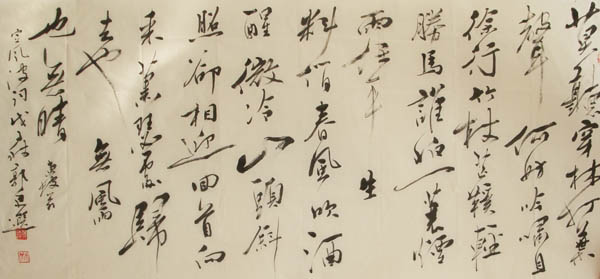 莫聽穿林打葉
聲何妨吟嘯且
徐行竹杖芒鞵輕
勝馬誰怕一蓑煙
雨任平生
料峭春風吹酒
醒微冷山頭斜
照卻相迎回首向
來蕭瑟處歸
去也無風雨
也無晴東坡
定風波詞戊子郭